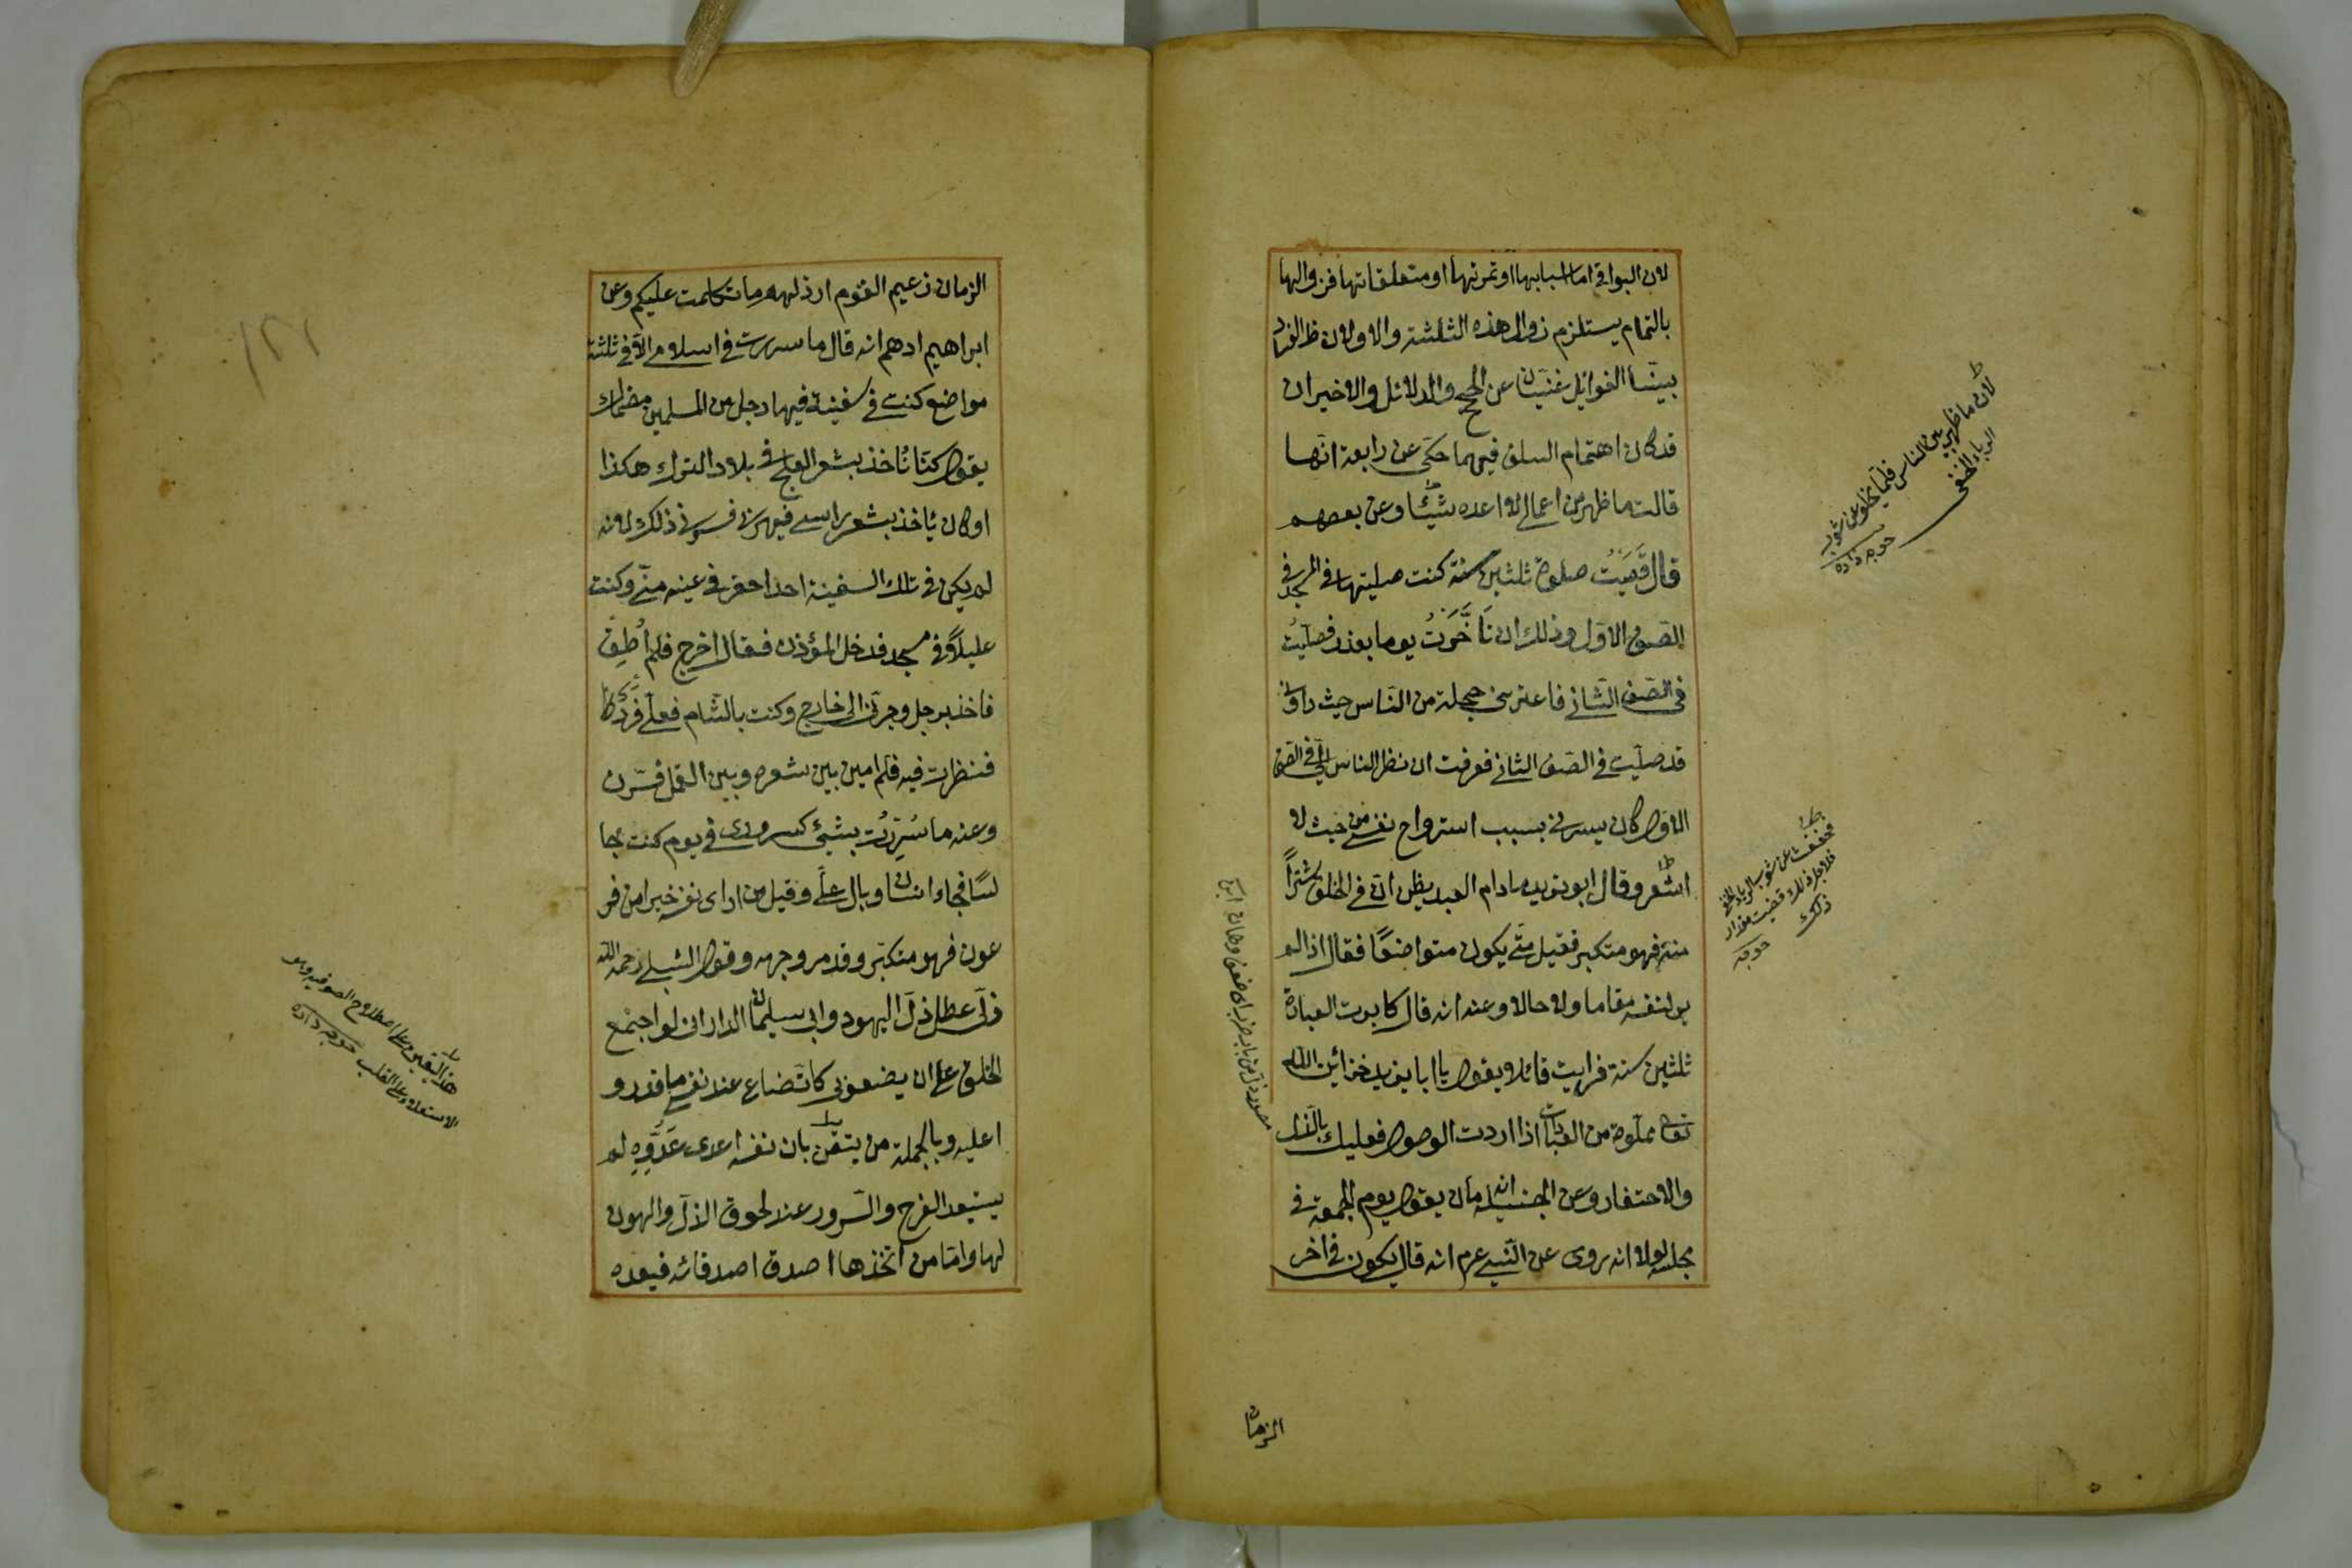 لان البواقى اما اسبابها او ثمرتها او متعلقاتها فزوالها
بالتمام يستلزم زوال هذه الثلثة والاولان ظ الفساد
بيّنا الغوايل غنيتان عن الحجج والدلائل والاخيران
قد كان اهتمام السلف فيهما حكى عن رابعة انّها
قالت ما ظهر من اعمالى لا اعده شيئا وعن بعضهم
قال قَضَيتُ صلوة ثلثين سنة كنت صليتها فى المسجد فى
الصّف الاوّل وذلك ان تَاَخَّرتُ يوما بعذر فصلّيتُ
فى الصّف الثّانى فاعترتنى خجلة من النّاس حيث راونى
قد صلّيت فى الصّف الثانى فعرفت ان نظر الناس الىّ فى الصّف
الاوّل كان يسرنى بسبب استرواح نفسى من حيث لا
اشعر وقال ابو يزيد مادام العبد يظن انّ فى الخلق شرّاً
منه فهو متكبر فقيل متى يكون متواضعًا فقال اذا لم
ير لنفسه مقاما ولا حالا وعنه انه قال كابدت العبادة
ثلثين سنة فرايت قائلا يقول يا ابا يزيد خزائن الله
تعالى مملوة من العبادات اذا اردت الوصول فعليك بالذل
والاحتقار وعن الجنيد انه كان يقول يوم الجمعة فى
مجلسه لولا انه روى عن النّبى عم انه قال يكون فى اخر
لان ما ظهر بين الناس قلّما يخلو عن شوب
الرياء الخفى
خوجه زاده
فخفت عن شوب الرياء الخفى
فلاجل ذلك قضيت مقدار
ذلك
خوجه
الزمان
الزمان زعيم القوم ارذلهم ما تكلمت عليكم وعن
ابراهيم ادهم انه قال ما سررت فى اسلامى الّا فى ثلثة
مواضع كنت فى سفينة فيها رجل من المسلمين مضحاك
يقول كنّا نُاخذ بشعر العلج فى بلاد الترك هكذا
وكان يُاخذ بشعر راسى فيهزنى فسرنى ذلك لانه
لم يكن فى تلك السفينة احد احقر فى عينه منّى وكنت
عليلًا فى مسجد فدخل المؤذن فقال اخرج فلم اُطِق
فاخذ برجلى وجرّنى الى خارج وكنت بالشّام فعلىّ فرو
فنظرت فيه فلم اميز بين شعره وبين القمل فسرّنى
وعنه ما سُرِرتُ بشئ كسرورى فى يوم كنت جا
لسًا فجاء انسان وبال علىّ وقيل من ارى نفسه خيرا من فر
عون فهو متكبّر وقد مر وجهه وقول الشبلى رحمه الله
ذلّى عطل ذلّ اليهود وابى سليمان الدارانى لو اجتمع
الخلق على ان يضعونى كاتّضاع عند نفسى ما قدرو
ا عليه وبالجملة من يتيقّن بان نفسه اعدى عَدُوِّهِ لم
يستبعد الفرح والسّرور عند لحوق الذلّ والهون
لها وامّا من اتّخذها اصدق اصدقائه فيعده
هذا اليقين على اصطلاح الصوفيه وهو
الاستعلاء على القلب خوجه زاده